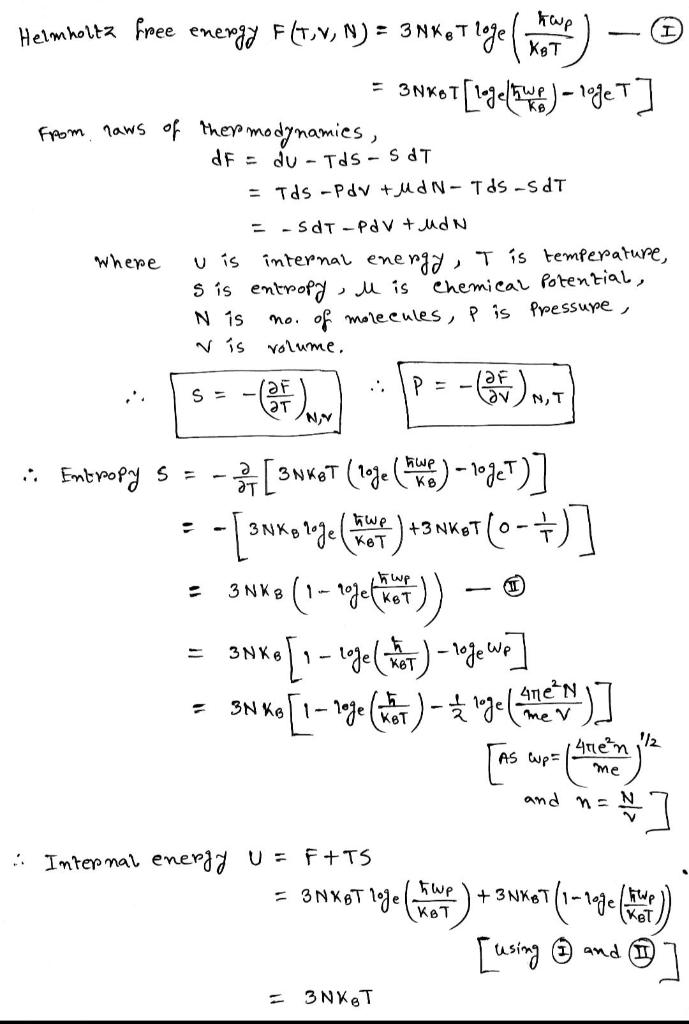 Helmholtz free energy F(T,V,N) = 3NK_BT log_e(ħω_P/K_BT) — (I)
= 3NK_BT[log_e(ħω_P/K_B) - log_e T]
From laws of thermodynamics,
dF = dU - TdS - SdT
= TdS - PdV + μdN - TdS - SdT
= - SdT - PdV + μdN
Where U is internal energy, T is temperature,
S is entropy, μ is chemical Potential,
N is no. of molecules, P is Pressure,
V is volume.
∴ S = -(∂F/∂T)_N,V ∴ P = -(∂F/∂V)_N,T
∴ Entropy S = -∂/∂T[3NK_BT(log_e(ħω_P/K_B) - log_e T)]
= -[3NK_B log_e(ħω_P/K_BT) + 3NK_BT(0 - 1/T)]
= 3NK_B(1 - log_e(ħω_P/K_BT)) — (II)
= 3NK_B[1 - log_e(ħ/K_BT) - log_e ω_P]
= 3NK_B[1 - log_e(ħ/K_BT) - 1/2 log_e(4πe²N/m_e V)]
[As ω_P = (4πe²n/m_e)^1/2
and n = N/V]
∴ Internal energy U = F + TS
= 3NK_BT log_e(ħω_P/K_BT) + 3NK_BT(1 - log_e(ħω_P/K_BT))
[using (I) and (II)]
= 3NK_BT